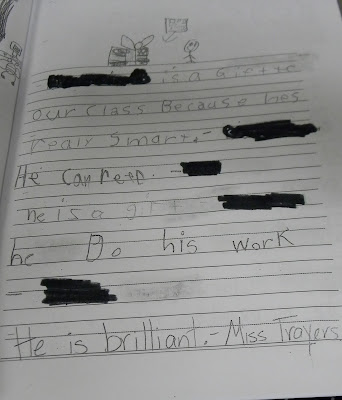 is a Gift to
our class Because hes
realr Smart.-
He can rern. -
he is a gift
he Do his work
-
He is brilliant.-Miss Trayers